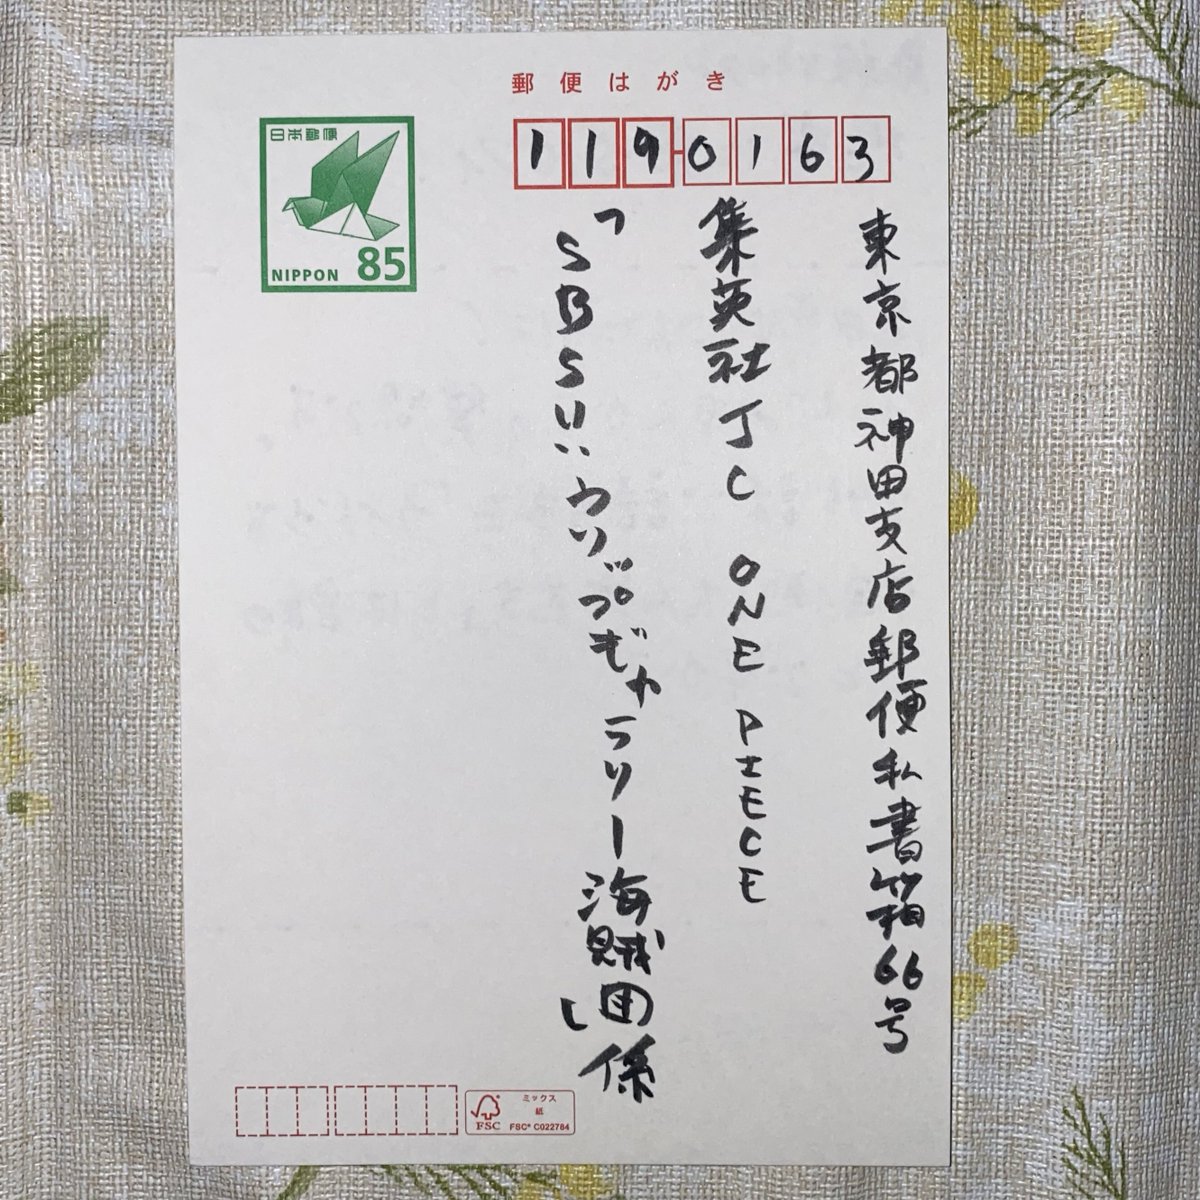 郵便はがき
日本郵便
NIPPON 85
119-0163
東京都神田支店郵便私書箱66号
集英社JC ONE PIECE
「SBSりいウソップギャラリー海賊団」係
ミックス
紙
FSC
FSC® C022784